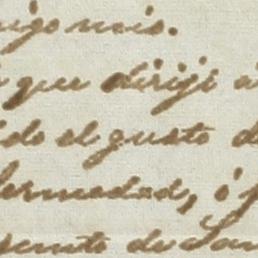 migo mio.
que dirigi a
ido el gusto d
fermedad, ó p
sente de San